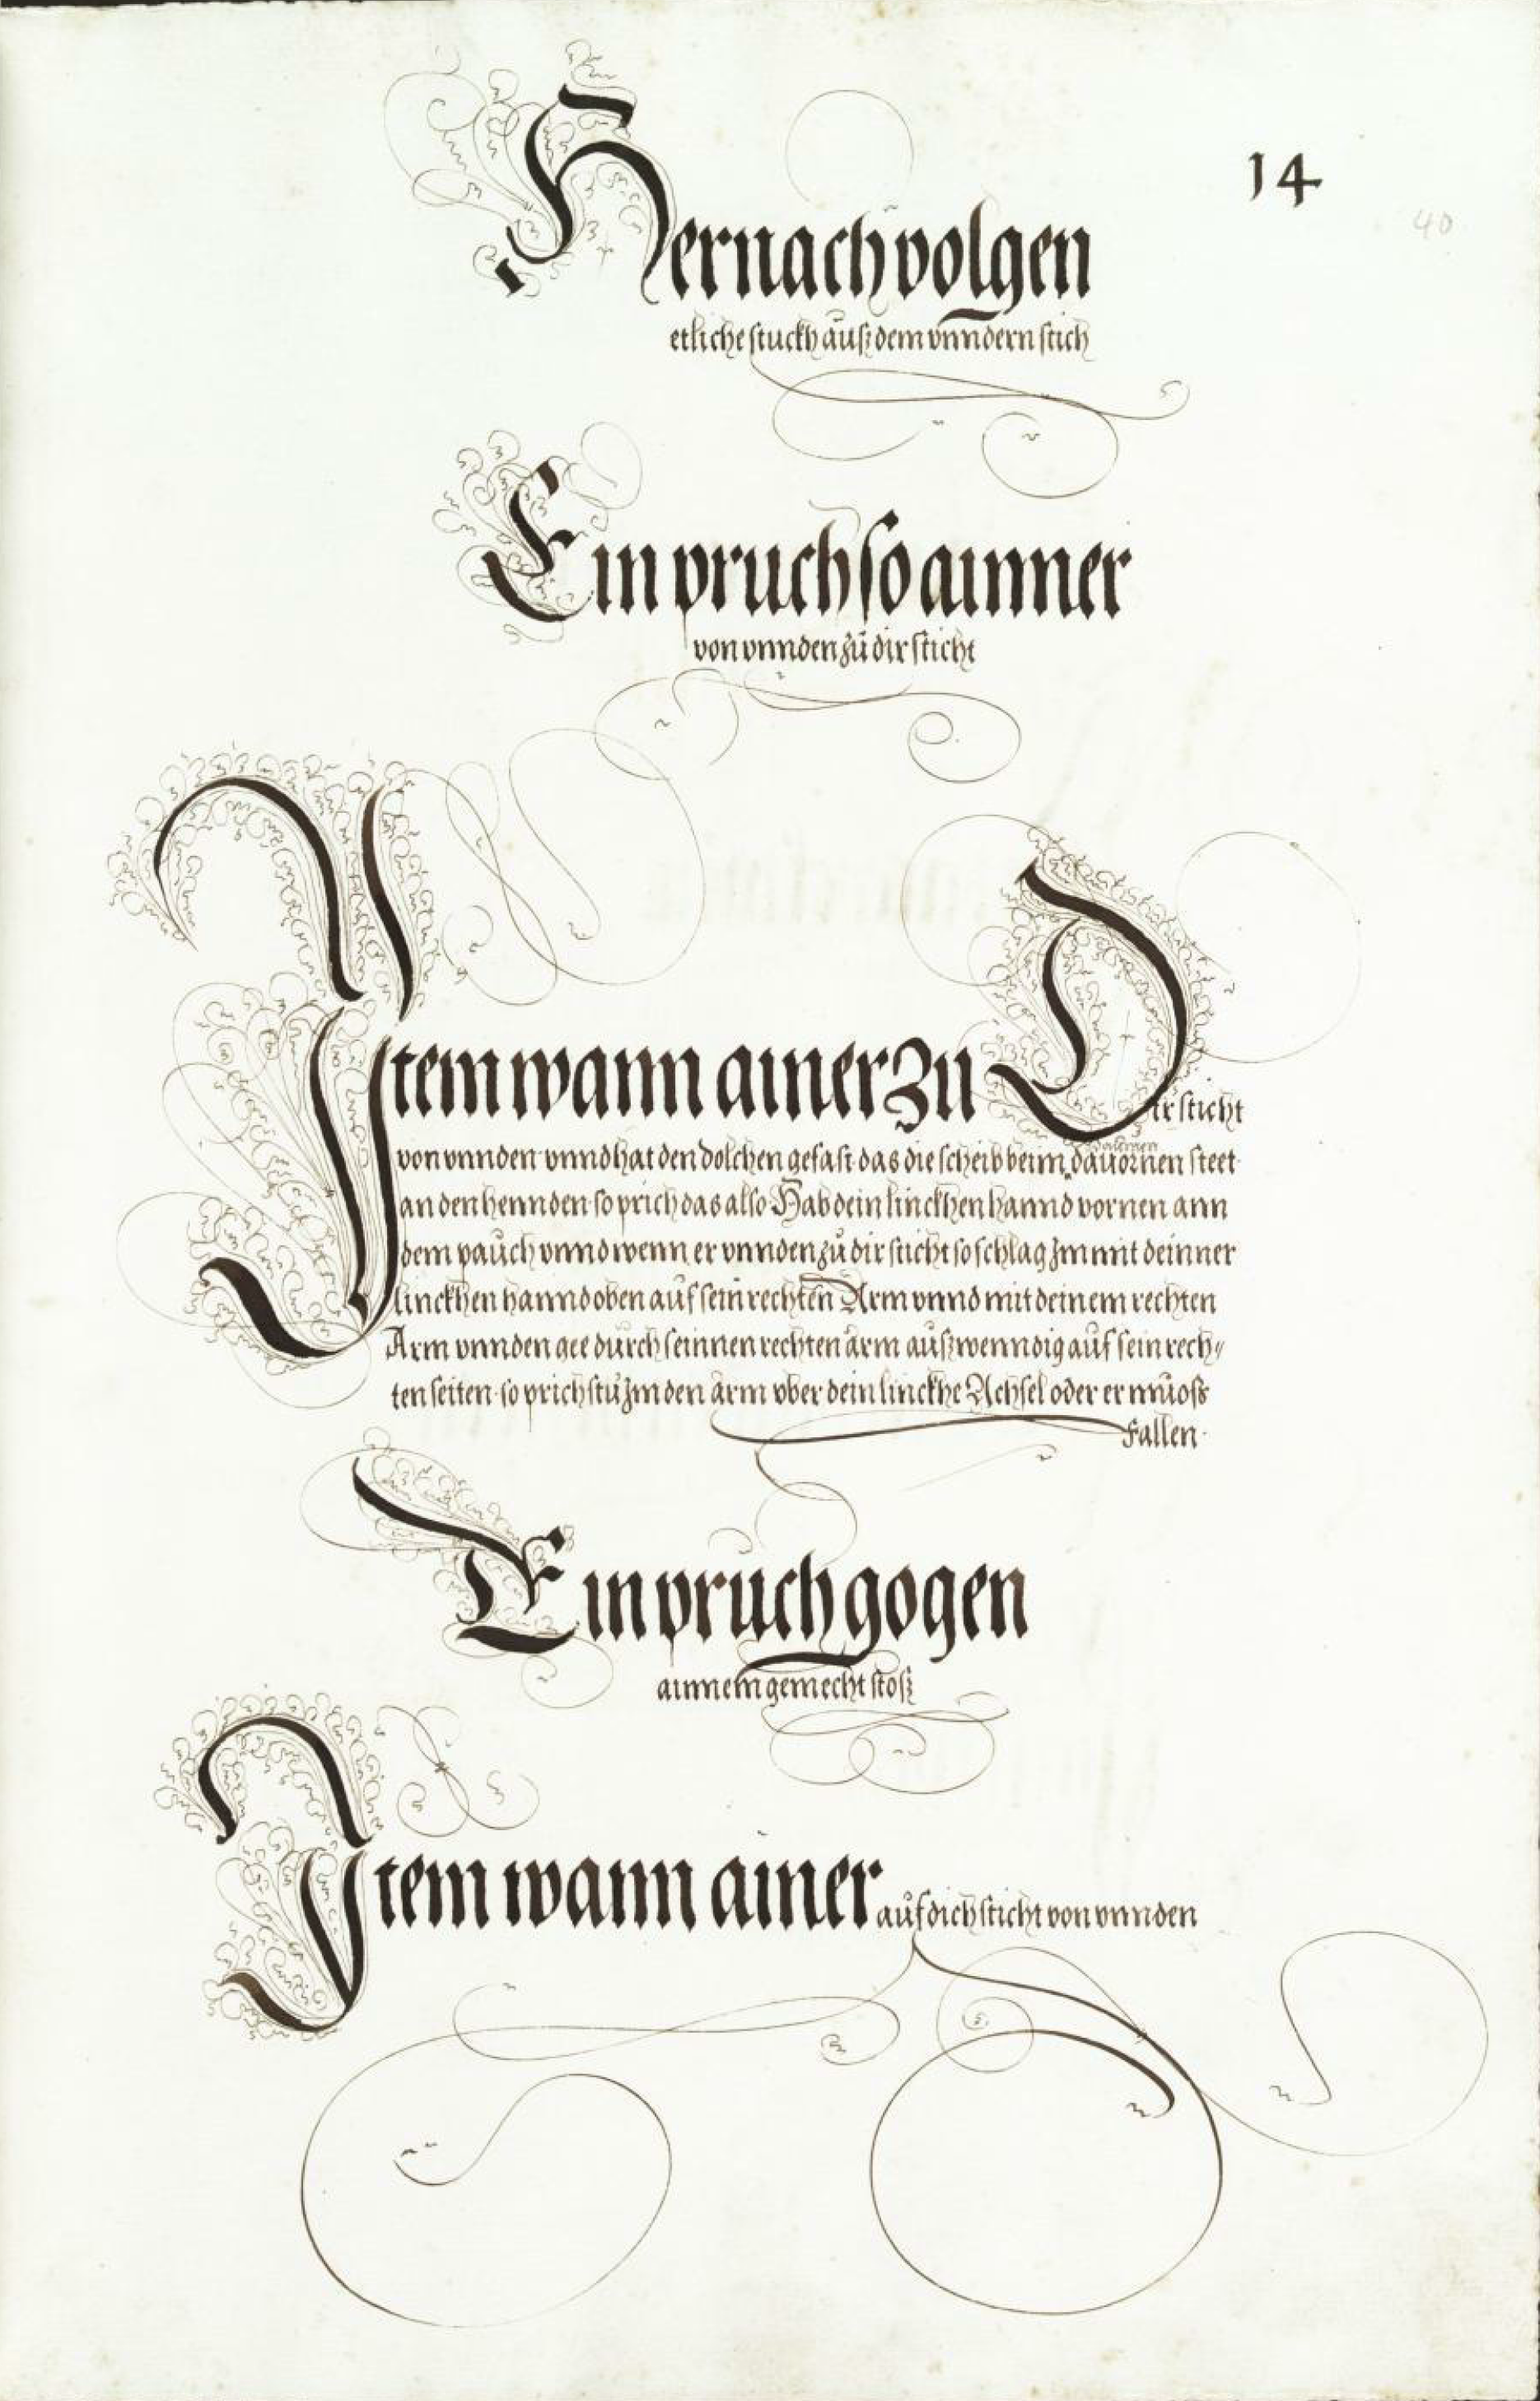 14
40
Hernach volgen
etliche stuckh auß dem vnndern stich
Ein pruch so ainner
von vnnden zů dir sticht
Item wann ainer zu Dir sticht
von vnnden vnnd hat den dolchen gefast das die scheib beim dauornen steet
an den hennden so prich das also Hab dein linckhen hannd vornen ann
dem pauch vnnd wenn er vnnden zů dir sticht so schlag Im mit deinner
linckhen hannd oben auf sein rechten Arm vnnd mit deinem rechten
Arm vnnden gee durch seinnen rechten arm außwenndig auf sein rech//
ten seiten so prichstu Im den arm vber dein linckhe Achsel oder er můoß
Fallen
Ein průch gogen
ainnem gemecht stoß
Item wann ainer auf dich sticht von vnnden